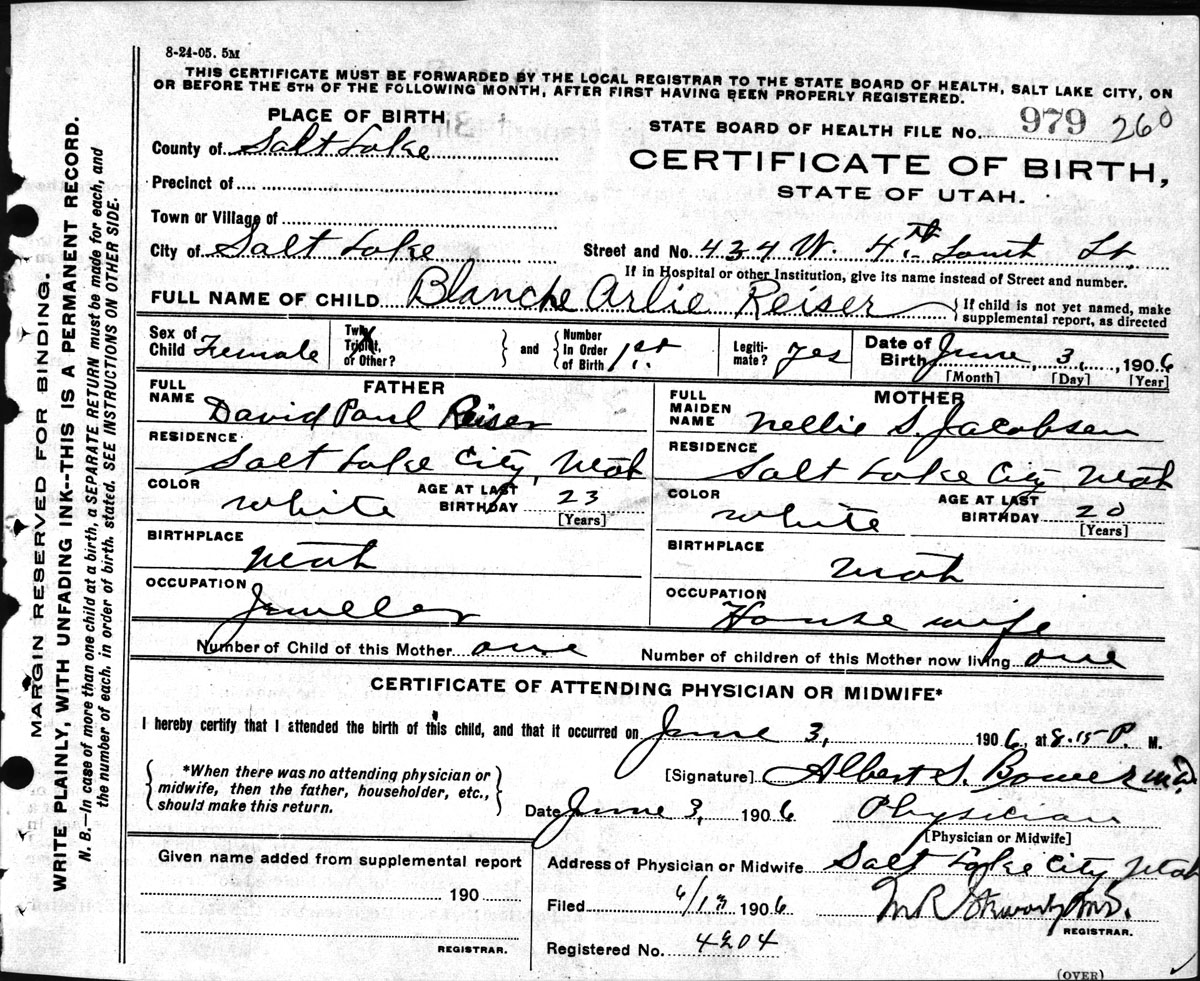 8-24-05. 5M
THIS CERTIFICATE MUST BE FORWARDED BY THE LOCAL REGISTRAR TO THE STATE BOARD OF HEALTH, SALT LAKE CITY, ON
OR BEFORE THE 5TH OF THE FOLLOWING MONTH, AFTER FIRST HAVING BEEN PROPERLY REGISTERED.
PLACE OF BIRTH
STATE BOARD OF HEALTH FILE No. 979 260
County of Salt Lake
CERTIFICATE OF BIRTH,
STATE OF UTAH.
Precinct of
Town or Village of
City of Salt Lake
Street and No. 434 W. 4th South St.
If in Hospital or other Institution, give its name instead of Street and number.
FULL NAME OF CHILD Blanche Arlie Reiser
{ If child is not yet named, make
supplemental report, as directed
Sex of Child Female
Twin, Triplet, or Other?
and
Number In Order of Birth 1st.
Legiti-mate? Yes
Date of Birth June 3, 1906
[Month] [Day] [Year]
FATHER
FULL NAME David Paul Reiser
RESIDENCE Salt Lake City, Utah
COLOR White
AGE AT LAST BIRTHDAY 23
[Years]
BIRTHPLACE Utah
OCCUPATION Jeweller
MOTHER
FULL MAIDEN NAME Nellie S. Jacobsen
RESIDENCE Salt Lake City Utah
COLOR White
AGE AT LAST BIRTHDAY 20
[Years]
BIRTHPLACE Utah
OCCUPATION House wife
Number of Child of this Mother one
Number of children of this Mother now living one
CERTIFICATE OF ATTENDING PHYSICIAN OR MIDWIFE*
I hereby certify that I attended the birth of this child, and that it occurred on June 3, 1906, at 8.15 P. M.
*When there was no attending physician or
midwife, then the father, householder, etc.,
should make this return.
[Signature] Albert S. Bower M.D.
Date June 3, 1906 Physician
[Physician or Midwife]
Given name added from supplemental report
190
REGISTRAR.
Address of Physician or Midwife Salt Lake City, Utah
Filed 6/13 1906
M.D.
REGISTRAR.
Registered No. 4204
(OVER)
MARGIN RESERVED FOR BINDING.
WRITE PLAINLY, WITH UNFADING INK--THIS IS A PERMANENT RECORD.
N. B.—In case of more than one child at a birth, a SEPARATE RETURN must be made for each, and
the number of each, in order of birth, stated. SEE INSTRUCTIONS ON OTHER SIDE.